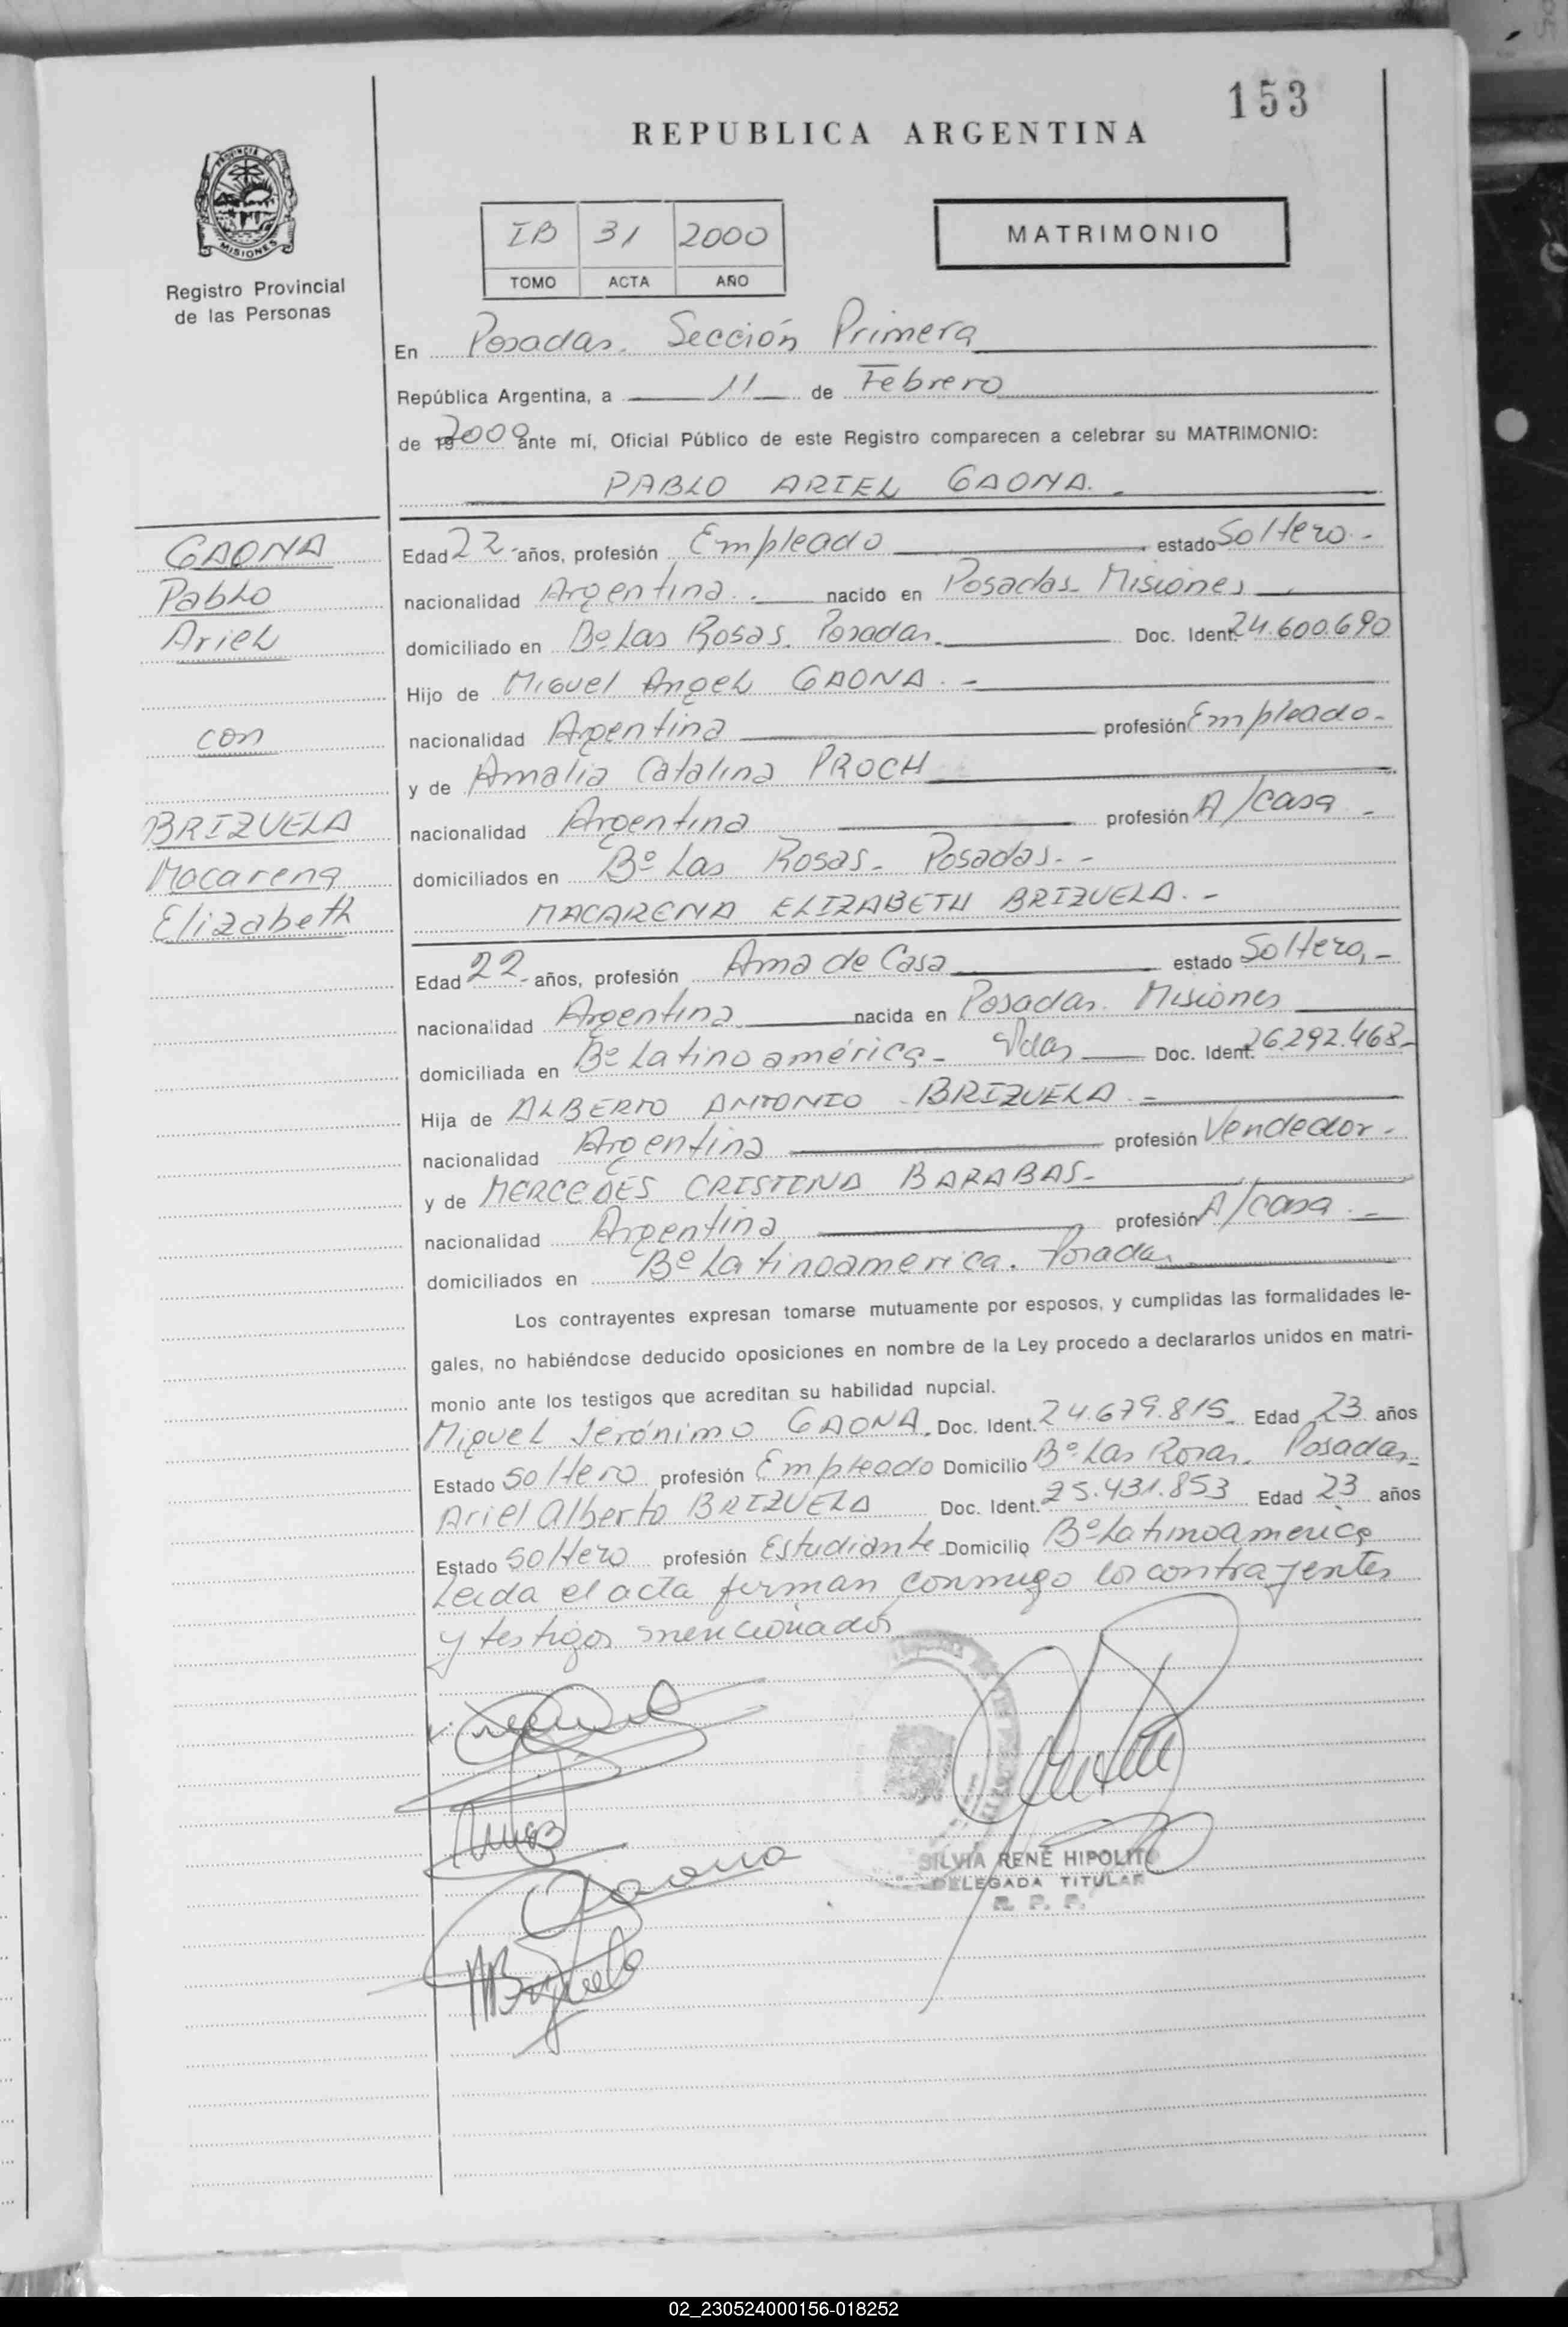 153
REPUBLICA ARGENTINA
PROVINCIA DE
MISIONES
Registro Provincial
de las Personas
IB 31 2000
TOMO ACTA AÑO
MATRIMONIO
En Posadas. Sección Primera
República Argentina, a 11 de Febrero
de 19 2000 ante mí, Oficial Público de este Registro comparecen a celebrar su MATRIMONIO:
PABLO ARIEL GAONA. -
GAONA
Pablo
Ariel
con
BRIZUELA
Macarena
Elizabeth
Edad 22 - años, profesión Empleado estado Soltero. -
nacionalidad Argentina. - nacido en Posadas - Misiones
domiciliado en Bº Las Rosas. Posadas. Doc. Ident. 24.600.690
Hijo de Miguel Angel GAONA. -
nacionalidad Argentina profesión Empleado -
y de Amalia Catalina PROCH
nacionalidad Argentina profesión A/casa -
domiciliados en Bº Las Rosas - Posadas. -
MACARENA ELIZABETH BRIZUELA. -
Edad 22 - años, profesión Ama de Casa estado Soltero, -
nacionalidad Argentina nacida en Posadas. Misiones
domiciliada en Bº Latinoamérica - Pdas Doc. Ident. 26.292.468 -
Hija de ALBERTO ANTONIO BRIZUELA. -
nacionalidad Argentina profesión Vendedor -
y de MERCEDES CRISTINA BARABAS -
nacionalidad Argentina profesión A/casa. -
domiciliados en Bº Latinoamerica. Posadas
Los contrayentes expresan tomarse mutuamente por esposos, y cumplidas las formalidades le-
gales, no habiéndose deducido oposiciones en nombre de la Ley procedo a declararlos unidos en matri-
monio ante los testigos que acreditan su habilidad nupcial.
Miguel Jerónimo GAONA. Doc. Ident. 24.679.815 - Edad 23 años
Estado soltero profesión Empleado Domicilio Bº Las Rosas. Posadas -
Ariel Alberto BRIZUELA Doc. Ident. 25.431.853 Edad 23 años
Estado soltero profesión Estudiante Domicilio Bº Latinoamerica
Leida el acta firman conmigo los contrayentes
y testigos mencionados
Gaona
MBrizuela
SILVIA RENÉ HIPOLITO
DELEGADA TITULAR
R. P. P.
02_230524000156-018252